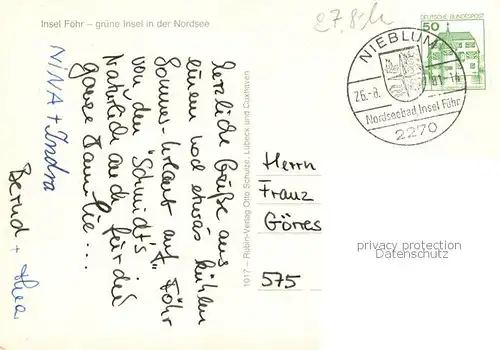 Insel Föhr – grüne Insel in der Nordsee
27.8.
DEUTSCHE BUNDESPOST
50
NIEBLUM
26.-8.
81-16
Nordseebad Insel Föhr
2270
Herzliche Grüße aus
einem noch etwas kühlen
Sommer-Urlaub auf Föhr
von den "Schmidt's"
Natürlich auch für die
ganze Familie...
NINA + Indra
Bernd + Thea
1017 – Rubin-Verlag Otto Schulze, Lübeck und Cuxhaven
Herrn
Franz
Görres
575
privacy protection
Datenschutz